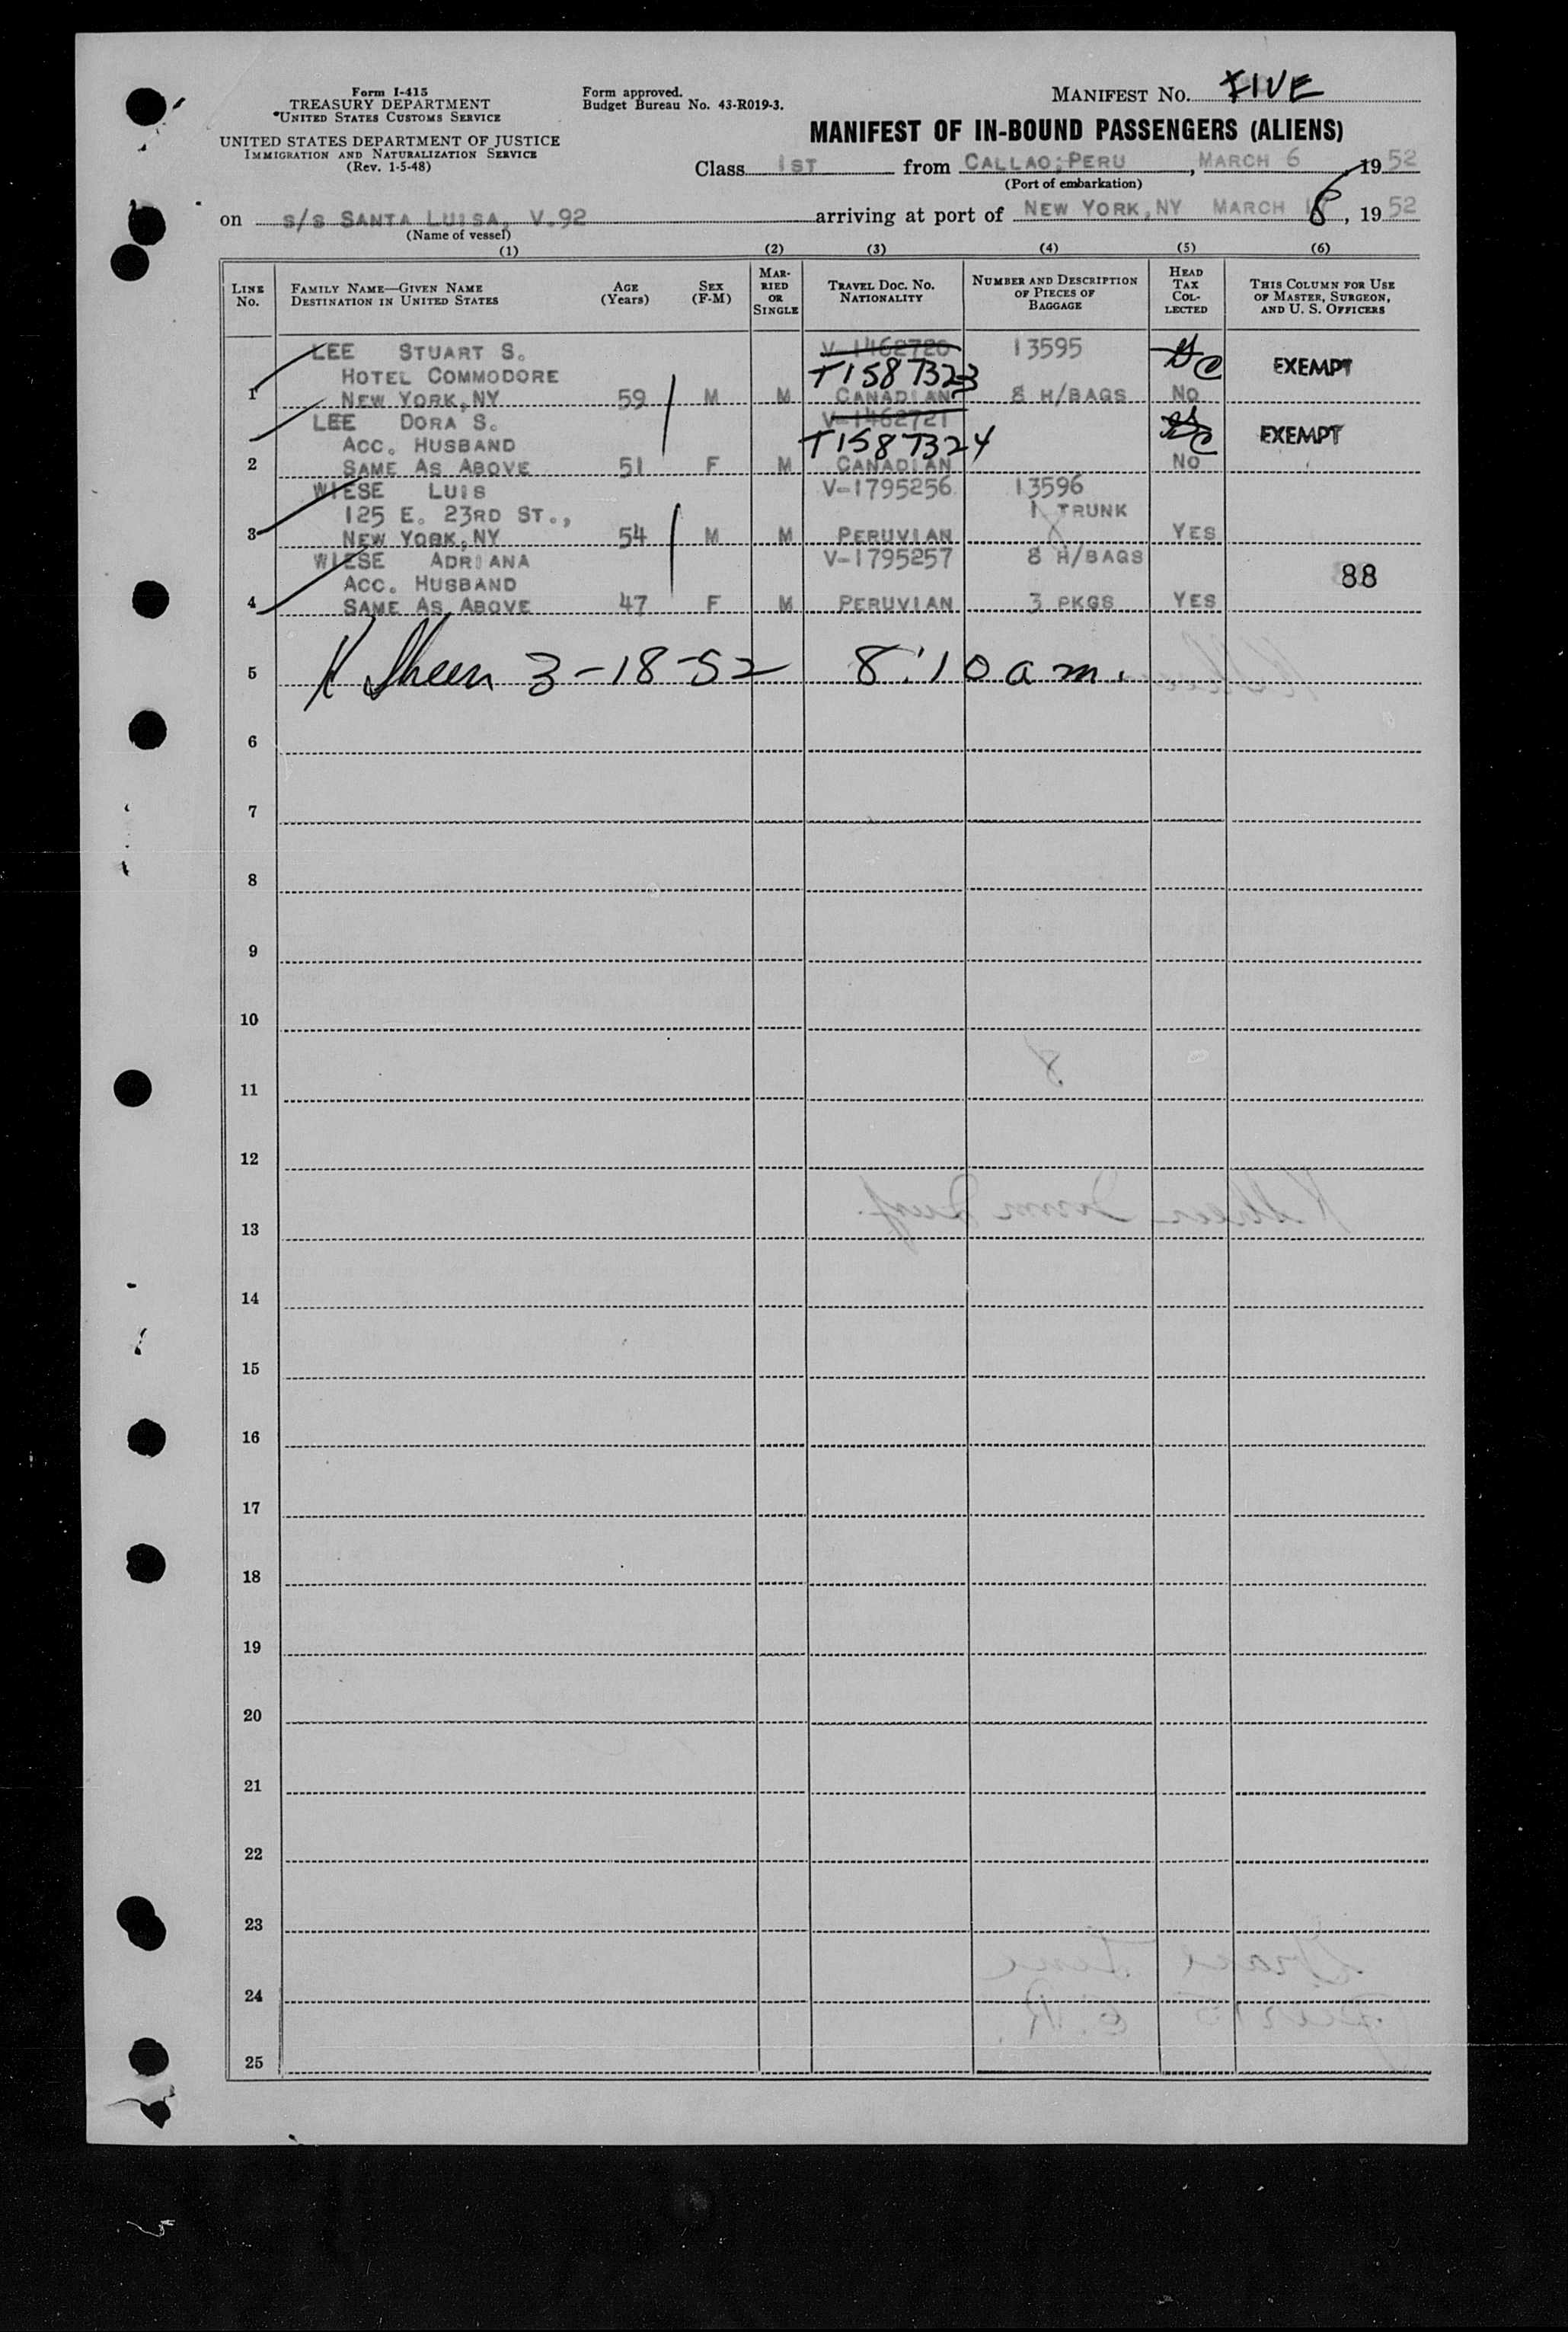 Form I-415
TREASURY DEPARTMENT
UNITED STATES CUSTOMS SERVICE
UNITED STATES DEPARTMENT OF JUSTICE
IMMIGRATION AND NATURALIZATION SERVICE
(Rev. 1-5-48)
Form approved.
Budget Bureau No. 43-R019-3.
MANIFEST NO. FIVE
MANIFEST OF IN-BOUND PASSENGERS (ALIENS)
Class 1ST from CALLAO;PERU, MARCH 6, 1952
(Port of embarkation)
on S/S SANTA LUISA, V.92 arriving at port of NEW YORK,NY MARCH 18, 1952
(Name of vessel)
(1) (2) (3) (4) (5) (6)
LINE No.
FAMILY NAME—GIVEN NAME
DESTINATION IN UNITED STATES
AGE (Years)
SEX (F-M)
MARRIED OR SINGLE
TRAVEL DOC. NO.
NATIONALITY
NUMBER AND DESCRIPTION OF PIECES OF BAGGAGE
HEAD TAX COLLECTED
THIS COLUMN FOR USE OF MASTER, SURGEON, AND U. S. OFFICERS
LEE STUART S. V-1462720 13595
HOTEL COMMODORE T1587323 EXEMPT
1 NEW YORK,NY 59 M M CANADIAN 8 H/BAGS NO
LEE DORA S. V-1462721
ACC. HUSBAND T1587324 EXEMPT
2 SAME AS ABOVE 51 F M CANADIAN NO
WIESE LUIS V-1795256 13596
125 E. 23RD ST., 1 TRUNK
3 NEW YORK,NY 54 M M PERUVIAN YES
WIESE ADRIANA V-1795257 8 H/BAGS
ACC. HUSBAND 88
4 SAME AS ABOVE 47 F M PERUVIAN 3 PKGS YES
5 K Sheen 3-18-52 8:10 am.
6
7
8
9
10
11
12
13
14
15
16
17
18
19
20
21
22
23
24
25